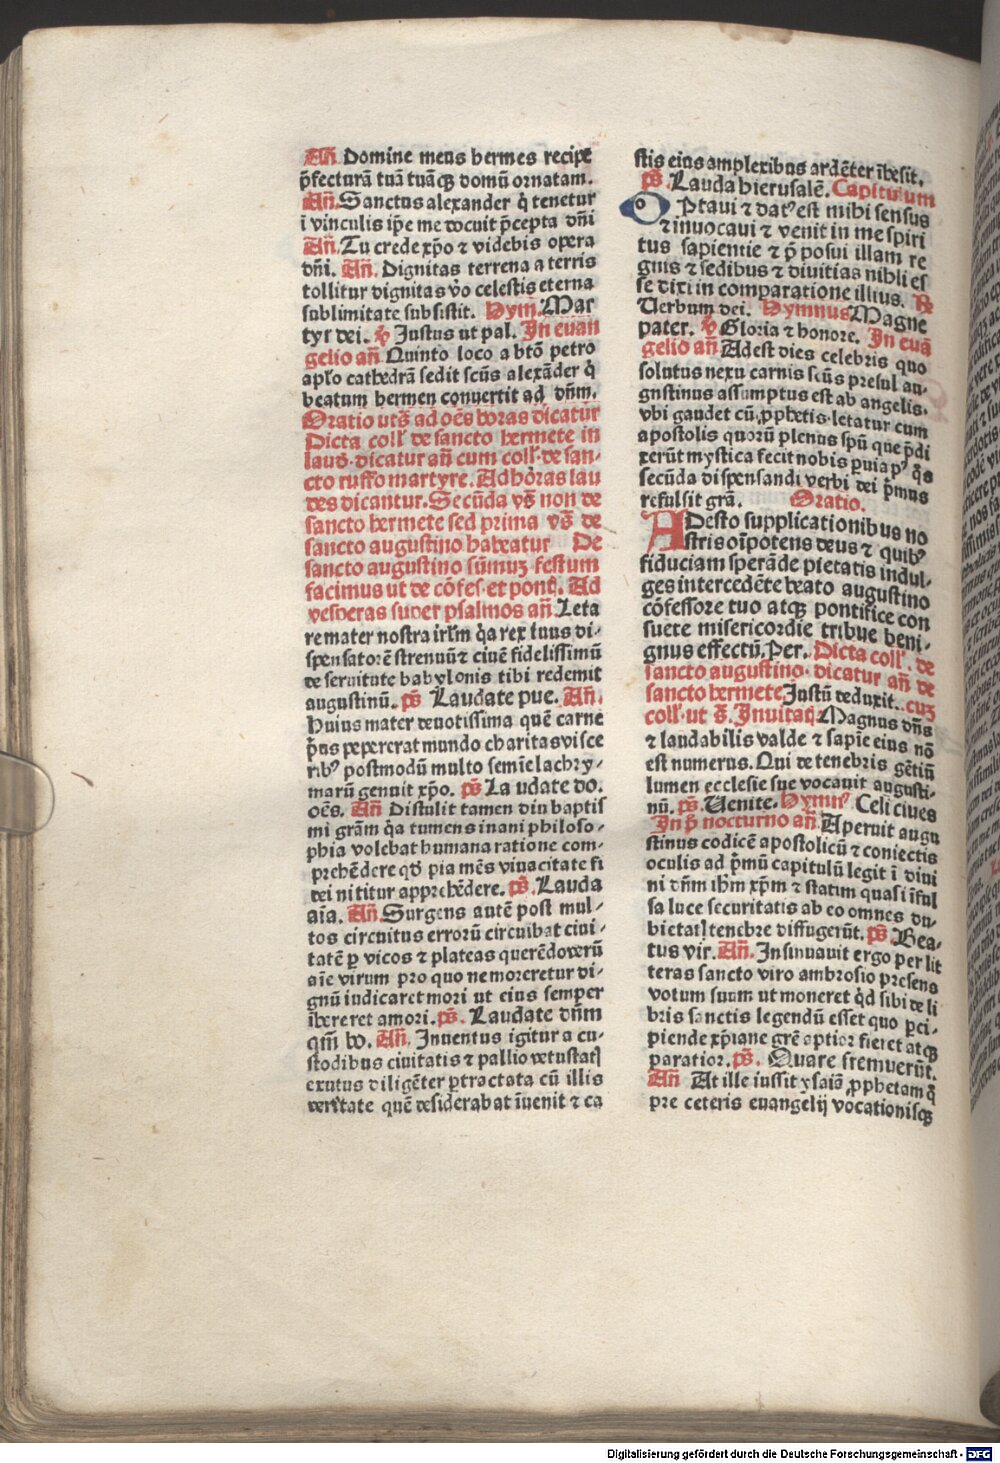 Añ. Domine meus hermes recipe
p̄fecturā tuā tuāqꝫ domū ornatam.
Añ. Sanctus alexander q̇ tenetur
ī vinculis ip̄e me docuit p̄cepta dñi
Añ. Tu crede xp̄o ⁊ videbis opera
dñi. Añ. Dignitas terrena a terris
tollitur dignitas v̄o celestis eterna
sublimitate subsistit. Hym̄. Mar
tyr dei. ꝟ Justus ut pal. In euan
gelio añ Quinto loco a btō petro
aplo cathedrā sedit scūs alexāder q̇
beatum hermen conuertit ad dñm.
Oratio uts̄ ad oēs horas dicatur
Dicta coll' de sancto hermete in
laud̄. dicatur añ cum coll'. de san-
cto ruffo martyre. Ad horas lau
des dicantur. Secūda vs̄ non de
sancto hermete sed prima vs̄ de
sancto augustino habeatur De
sancto augustino sūmuꝫ festum
facimus ut de cōfes. et pont. Ad
vesperas super psalmos añ Leta
re mater nostra irlm̄ q̇a rex tuus di-
spensatorē strenuū ⁊ ciuē fidelissimū
de seruitute babylonis tibi redemit
augustinū. ps̄ Laudate pue. Añ.
Huius mater deuotissima quē carne
p̄us pepererat mundo charitas visce
rib⁹ postmodū multo semīe lachry-
marū genuit xp̄o. ps̄. Laudate do.
oēs. Añ Distulit tamen diu baptis
mi grām q̇a tumens inani philoso-
phia volebat humana ratione com-
prehēdere qd̄ pia mēs viuacitate fi
dei nititur apprehēdere. ps̄. Lauda
aīa. Añ. Surgens autē post mul-
tos circuitus errorū circuibat ciui-
tatē ꝑ vicos ⁊ plateas querēdo verū
aīe virum pro quo ne moreretur di-
gnū iudicaret mori ut eius semper
īhereret amori. ps̄. Laudate dñm
qm̄ bo. Añ. Inuentus igitur a cu-
stodibus ciuitatis ⁊ pallio vetustatꝭ
exutus diligēter ꝑtractata cū illis
veritate quē desiderabat īuenit ⁊ ca
stis eius amplexibus ardēter īhesit.
ps̄. Lauda hierusalē. Capitulum
Optaui ⁊ dat⁹ est mihi sensus
⁊ inuocaui ⁊ venit in me spiri
tus sapientie ⁊ p̄posui illam re
gnis ⁊ sedibus ⁊ diuitias nihil es
se dixi in comparatione illius. ℞
Verbum dei. Hymnus Magne
pater. ꝟ Gloria ⁊ honore. In euā
gelio añ Adest dies celebris quo
solutus nexu carnis scūs presul au-
gustinus assumptus est ab angelis.
vbi gaudet cū ꝓphetis. letatur cum
apostolis quorū plenus spū que p̄di
xerūt mystica fecit nobis ꝑuia p⁹ q̄s
secūda dispensandi verbi dei p̄mus
refulsit grā. Oratio.
ADesto supplicationibus no
stris oīpotens deus ⁊ quib⁹
fiduciam sperāde pietatis indul-
ges intercedēte beato augustino
cōfessore tuo atqꝫ pontifice con
suete misericordie tribue beni-
gnus effectū. Per. Dicta coll'. de
sancto augustino. dicatur añ de
sancto hermete Justū deduxit. cuꝫ
coll'. ut s̄. Inuitat̄ Magnus dñs
⁊ laudabilis valde ⁊ sapīe eius nō
est numerus. Qui de tenebris gētiū
lumen ecclesie sue vocauit augusti-
nū. ps̄. Venite. Hymn⁹ Celi ciues
In p̄ nocturno añ Aperuit augu
stinus codicē apostolicū ⁊ coniectis
oculis ad p̄mū capitulū legit ī diui
ni dñm ihm̄ xp̄m ⁊ statim quasi īful
sa luce securitatis ab eo omnes du-
bietatꝭ tenebre diffugerūt. ps̄. Bea-
tus vir. Añ. Insinuauit ergo per lit
teras sancto viro ambrosio presens
votum suum ut moneret qd̄ sibi de li
bris sanctis legendū esset quo ꝑci-
piende xp̄iane grē aptior fieret atqꝫ
paratior. ps̄. Quare fremuerūt.
Añ At ille iussit ysaiā ꝓphetam q̇
pre ceteris euangelij vocationisqꝫ
Digitalisierung gefördert durch die Deutsche Forschungsgemeinschaft - DFG